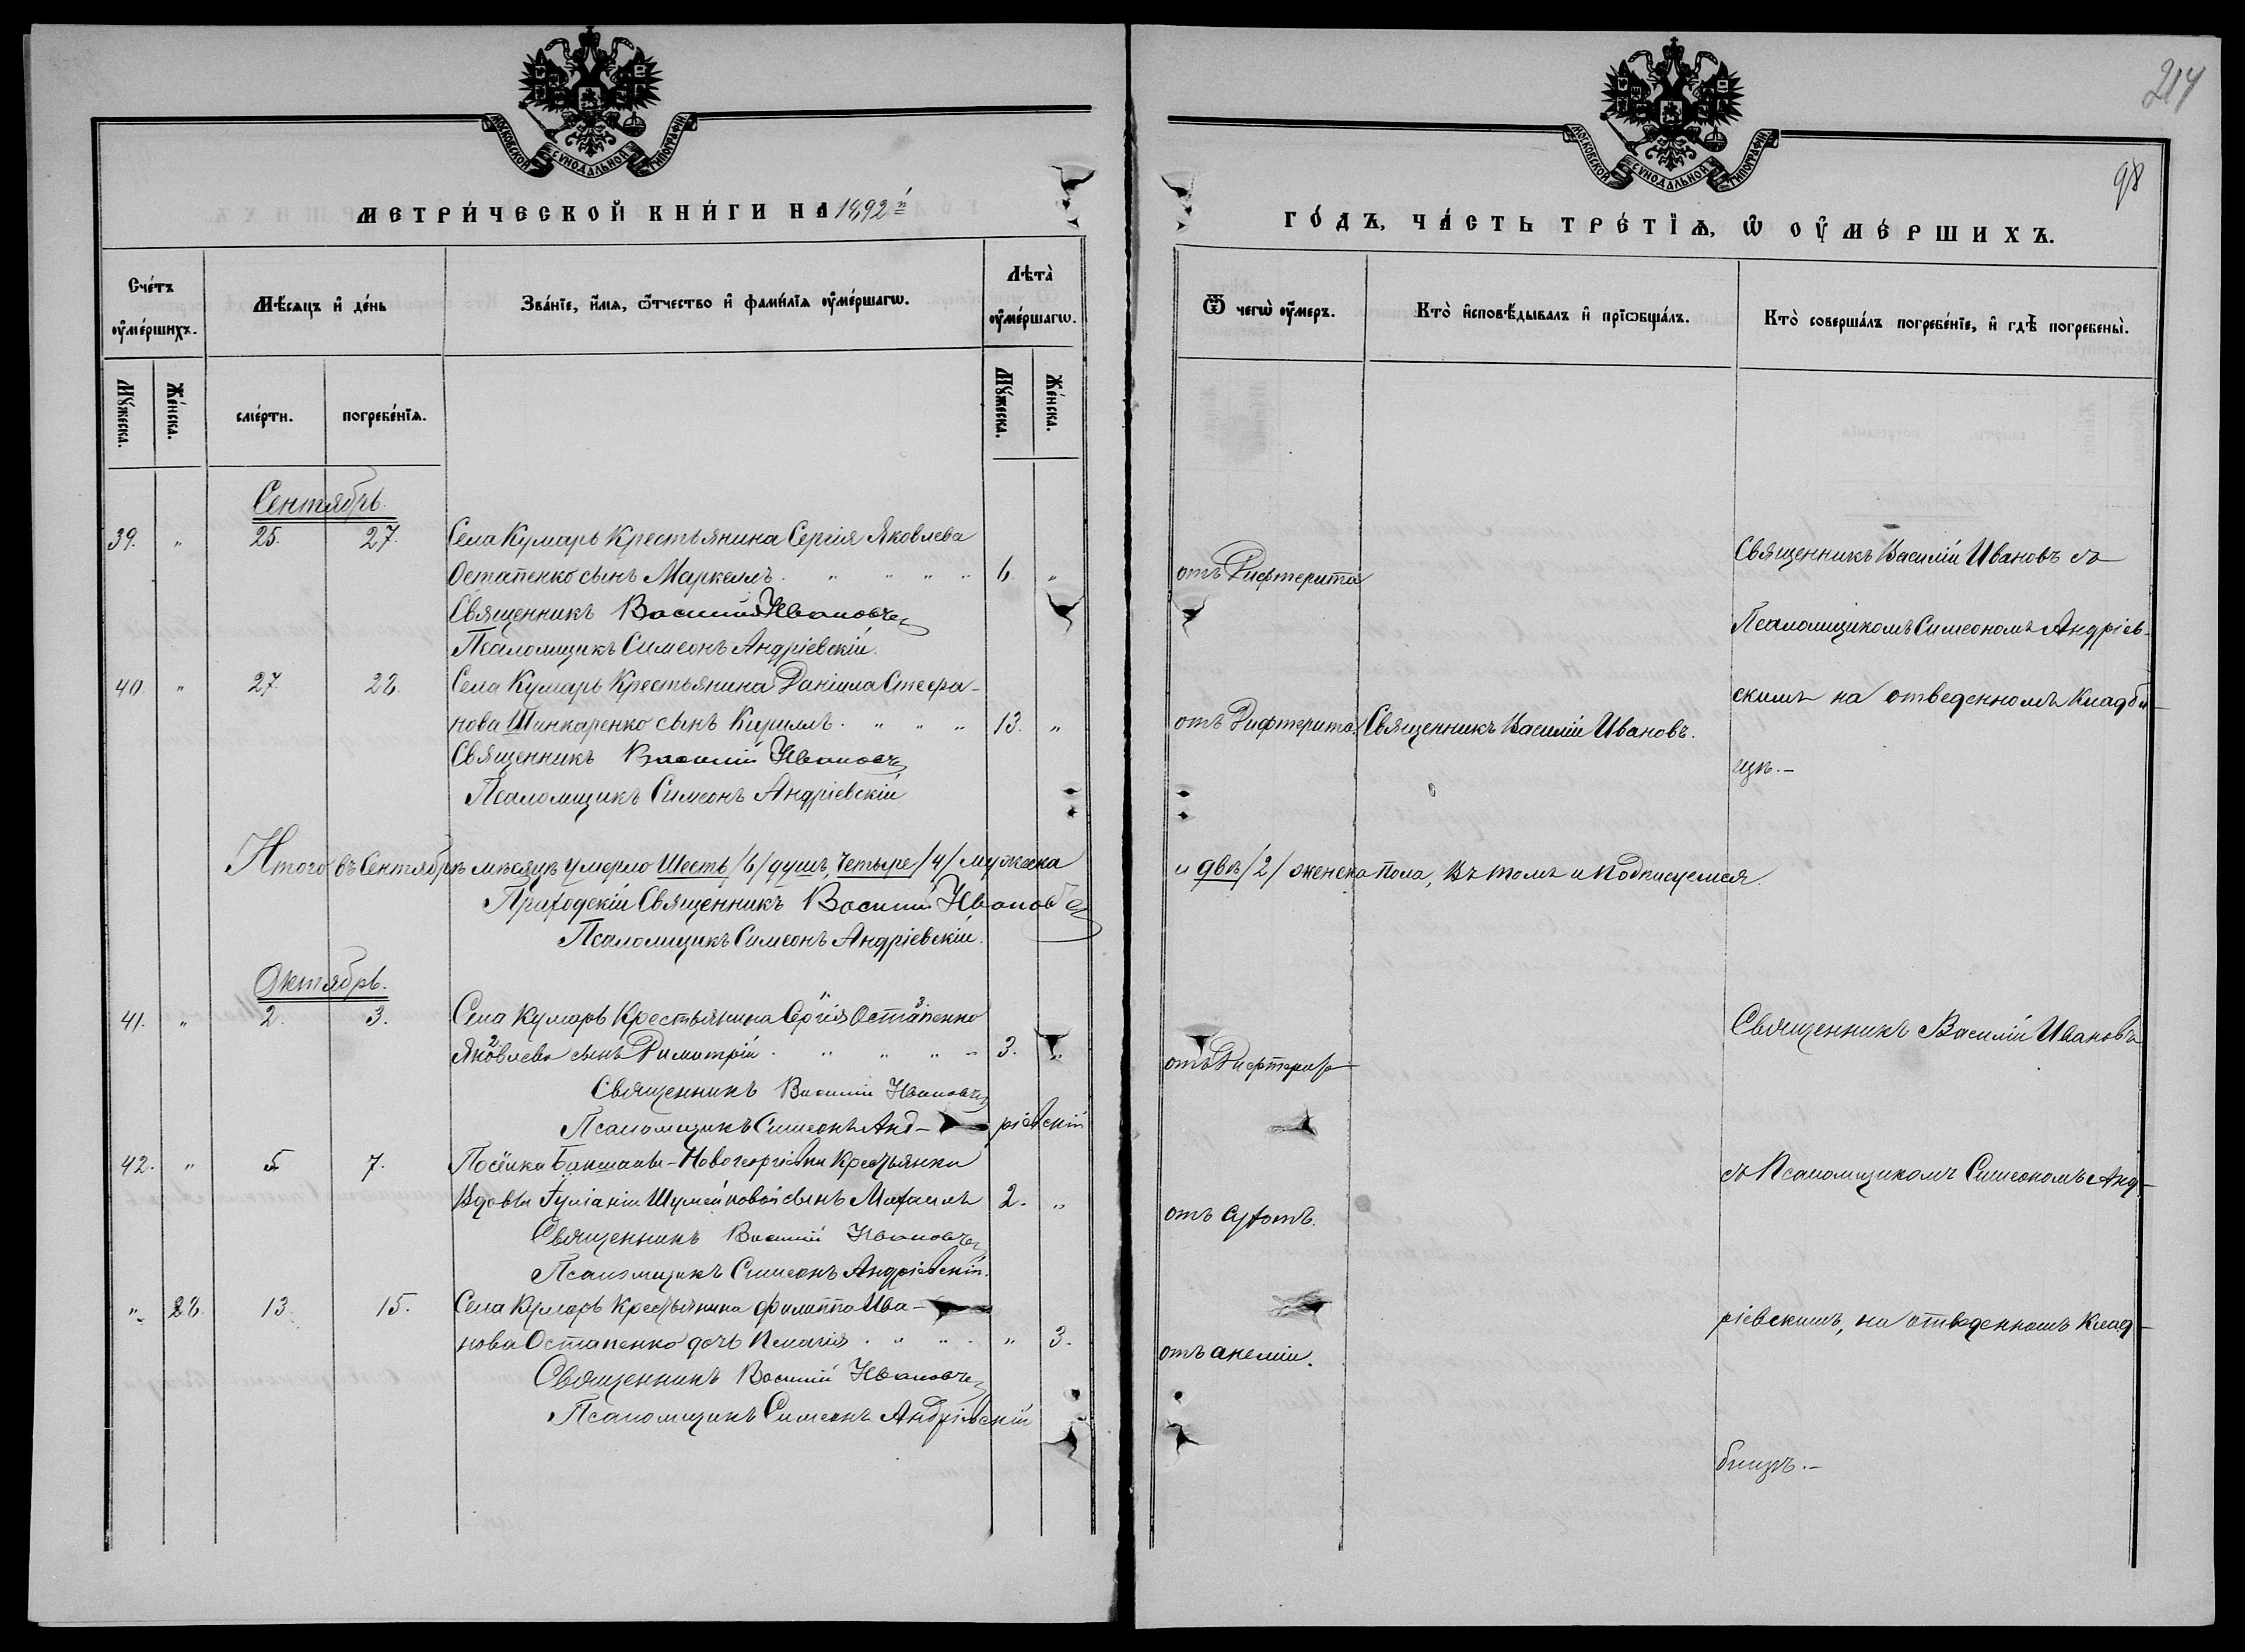 МОСКОВСКОЙ СѴНОДАЛЬНОЙ ТИПОГРАФІИ
МЕТРИ́ЧЕСКОЙ КНИ́ГИ НА 1892й
Сче́тъ ᲂу҆ме́ршихъ.
Мѣ́сяцъ и҆ де́нь
Зва́нїе, и҆́мя, ѻ҆́тчество и҆ фами́лїя ᲂу҆ме́ршагѡ.
Лѣта̀ ᲂу҆ме́ршагѡ.
Мꙋ́жеска.
Же́нска.
сме́рти.
погребе́нїя.
Мꙋ́жеска.
Же́нска.
Сентябрь.
39. " 25. 27. Села Кумаръ Крестьянина Сергія Яковлева
Остапенко сынъ Маркеллъ. " " " " 6. "
Священникъ Василій Ивановъ
Псаломщикъ Симеонъ Андріевскій.
40. " 27. 28. Села Кумаръ Крестьянина Даніила Стефа-
нова Шинкаренко сынъ Кириллъ. " " " 13. "
Священникъ Василій Ивановъ
Псаломщикъ Симеонъ Андріевскій
Итого въ Сентябрѣ мѣсяцѣ умерло Шесть /6/ душъ, Четыре /4/ мужеска
Приходскій Священникъ Василій Ивановъ
Псаломщикъ Симеонъ Андріевскій.
Октябрь.
41. " 2. 3. Села Кумаръ Крестьянина Сергія Остапенко
Яковлева сынъ Димитрій. " " " " 3. "
Священникъ Василій Ивановъ
Псаломщикъ Симеонъ Анд- ріевскій
42. " 5 7. Посёлка Бакшалы-Новогеоргіевки Крестьянки
Вдовы Іуліаніи Шумейковой сынъ Михаилъ 2. "
Священникъ Василій Ивановъ
Псаломщикъ Симеонъ Андріевскій.
" 28. 13. 15. Села Кумаръ Крестьянина Филиппа Ива-
нова Остапенко дочь Пелагія. " " " 3.
Священникъ Василій Ивановъ
Псаломщикъ Симеонъ Андріевскій
214
98
МОСКОВСКОЙ СѴНОДАЛЬНОЙ ТИПОГРАФІИ
ГО́ДЪ, ЧА́СТЬ ТРЕ́ТЇѦ, Ѡ ОУ҆МЕ́РШИХЪ.
Ѿ чегѡ̀ ᲂу҆́меръ.
Кто̀ и҆сповѣ́дывалъ и҆ прїѡбща́лъ.
Кто̀ соверша́лъ погребе́нїе, и҆ гдѣ̀ погребены̀.
отъ Дифтерита
Священникъ Василій Ивановъ съ
Псаломщикомъ Симеономъ Андріев-
отъ Дифтерита. Священникъ Василій Ивановъ.
скимъ на отведенномъ Кладби-
щѣ.-
и двѣ /2/ женска пола, Въ томъ и Подписуемся.
отъ Дифтерита
Священникъ Василій Ивановъ
отъ
съ Псаломщикомъ Симеономъ Анд-
отъ анеміи.
ріевскимъ, на отведенномъ Клад-
бищѣ.-